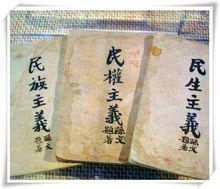 民族主義
孫文
題署
民權主義
孫文
題署
民生主義
孫文
題署